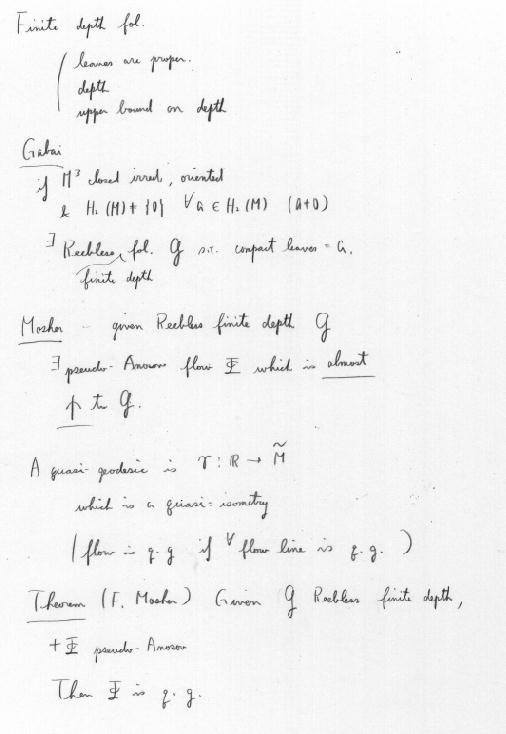 Finite depth fol.
leaves are proper.
depth
upper bound on depth
Gabai
if M³ closed irred, oriented
& H₂(M) ≠ {0} ∀ a ∈ H₂(M) (a ≠ 0)
∃ Reebless fol. G s.t. compact leaves = a.
finite depth
Mosher - given Reebless finite depth G
∃ pseudo-Anosov flow Φ which is almost
⋔ to G.
A quasi-geodesic is γ: ℝ → M̃
which is a quasi-isometry
(flow is q.g if ∀ flow line is q.g.)
Theorem (F. Mosher) Given G Reebless finite depth,
+ Φ pseudo-Anosov
Then Φ is q.g.